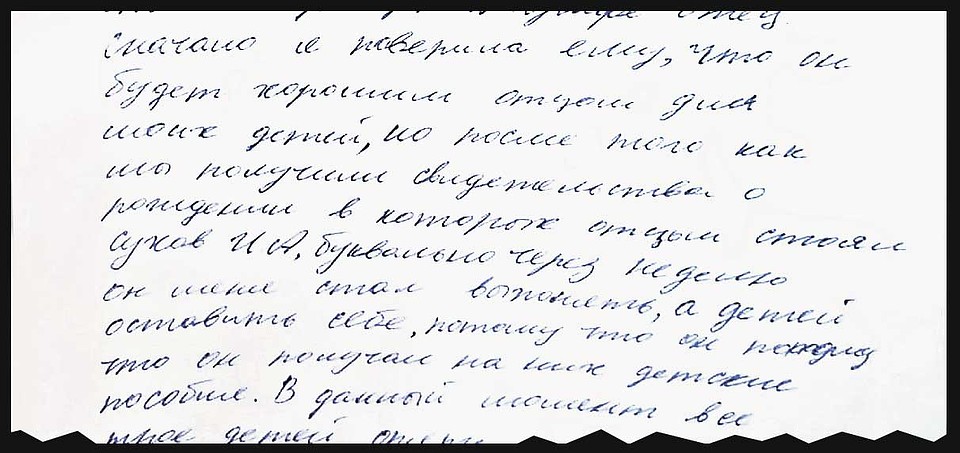 отец.
Сначало я поверила ему, что он
будет хорошим отцом для
моих детей, но после того как
мы получили свидетельства о
рождении в которых отцом стоял
Сухов И А, буквально через неделю
он меня стал выгонять, а детей
оставить себе, потому что он
что он получал на них детские
пособие. В данный момент все
трое детей